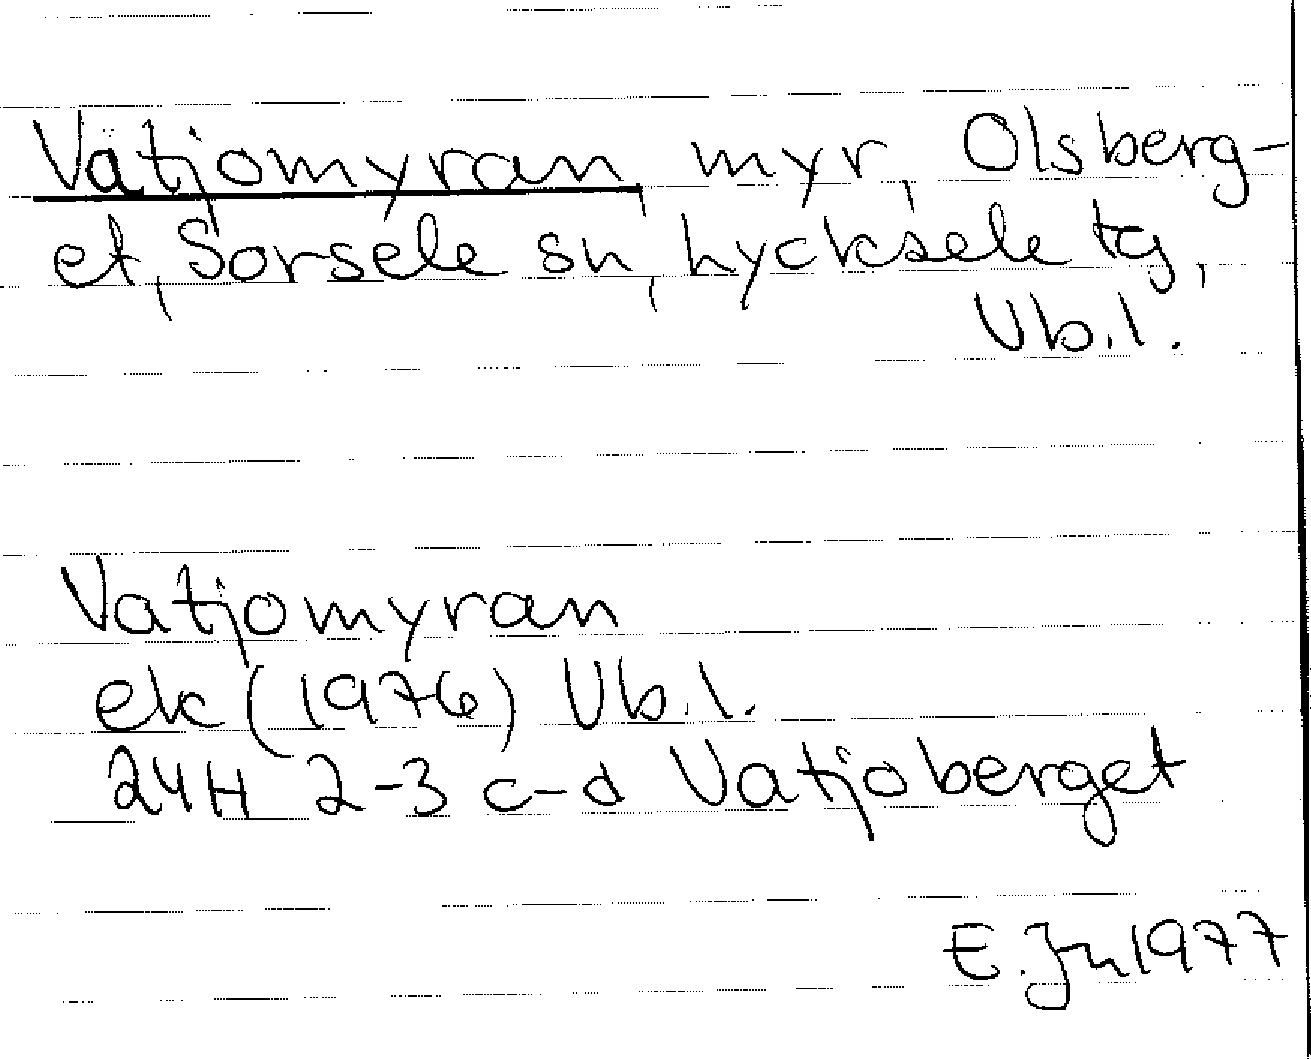 Vätjomyran, myr, Olsberg-
et, Sorsele sn, Lycksele tg,
Vb.l.
Vatjomyran
ek (1976) Vb.l.
24H 2-3 c-d Vatjoberget
E. Jn 1977